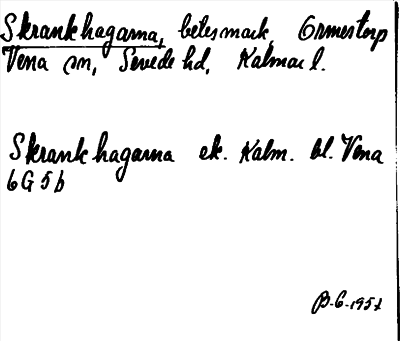 Skrankhagarna, betesmark, Ormestorp
Vena sn, Sevede hd, Kalmar l.
Skrankhagarna ek. Kalm. bl. Vena
6G 5b
B-G-1957